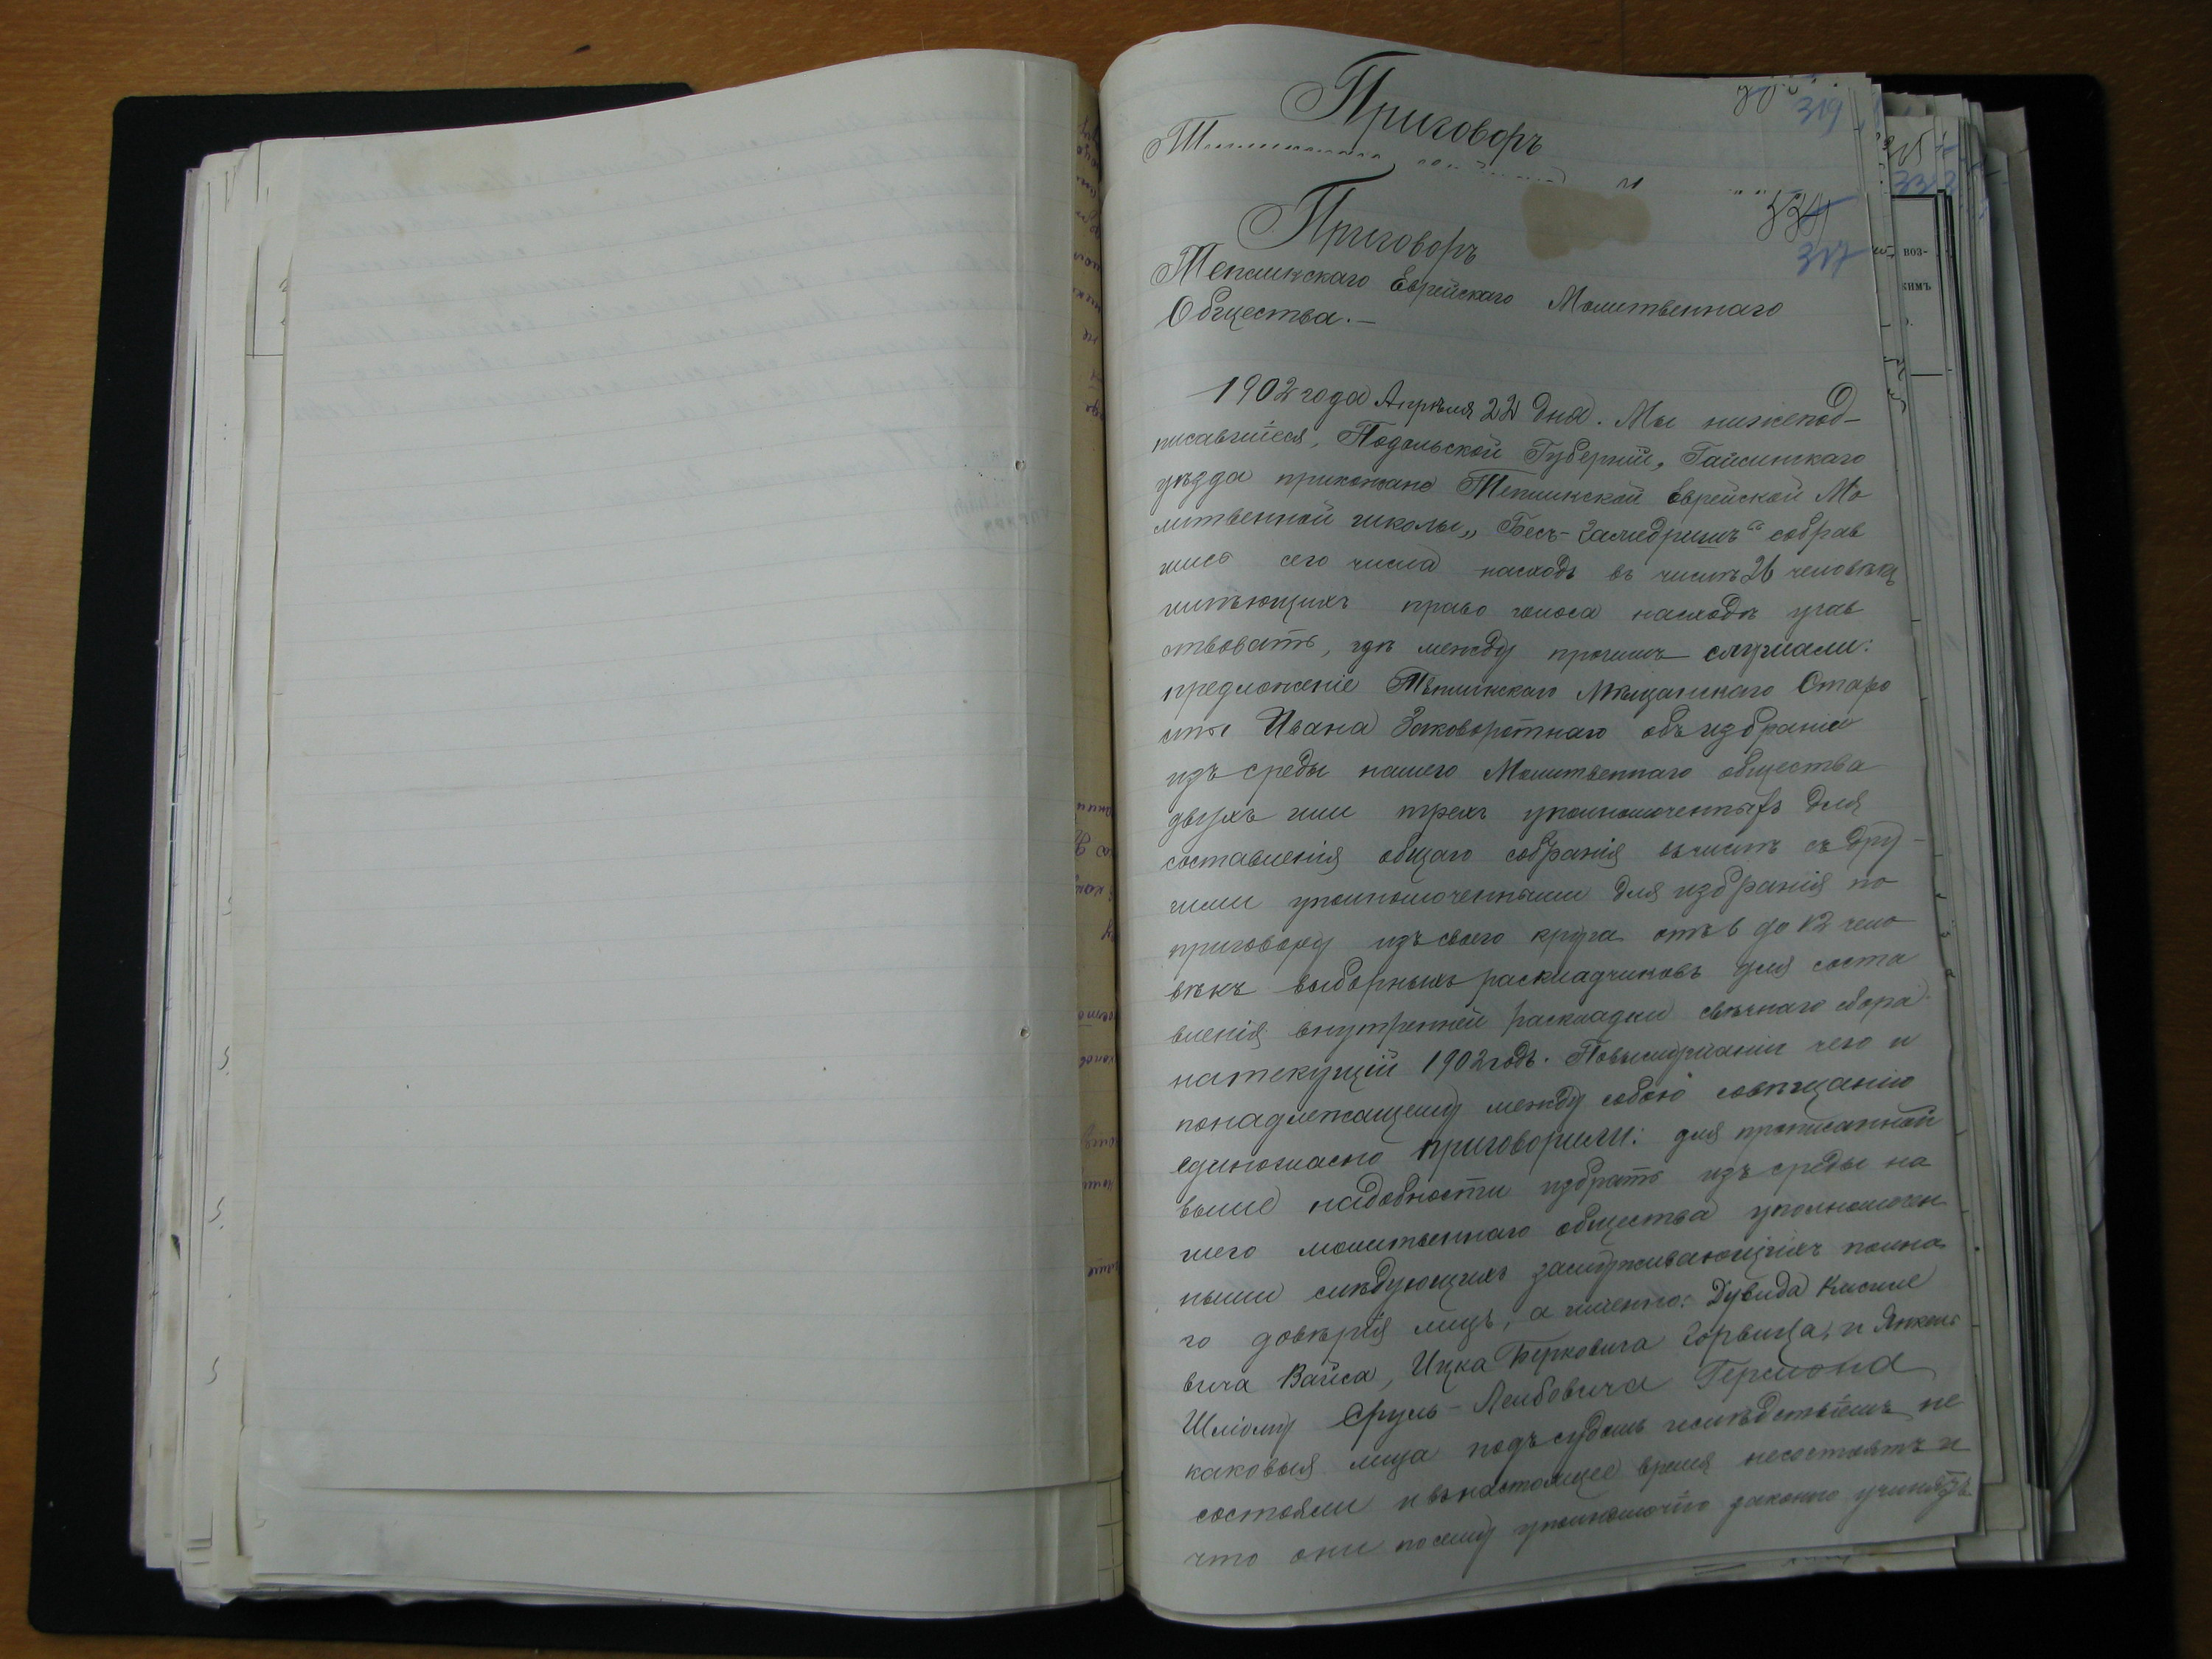 Приговоръ
319
Приговоръ
334
317
Тепликскаго Еврейскаго Молитвеннаго
Общества.—
1902 года Апрѣля 22 дня. Мы нижепод-
писавшіеся, Подольской Губерніи, Гайсинскаго
уѣзда прихожане Тепликской Еврейской Мо
литвенной школы „Бесъ-Гамедришъ“ собрав
шись сего числа насходъ въ числѣ 26 человѣкъ
имѣющихъ право голоса насходѣ учав
ствовать, гдѣ между прочимъ слушали:
предложеніе Тепликскаго Мѣщанскаго Старо
сты Ивана Заковоротнаго объ избраніи
изъ среды нашего Молитвеннаго общества
двухъ или трехъ уполномоченныхъ для
составленія общаго собранія вмѣстѣ съ дру-
гими уполномоченными для избранія по
приговору изъ своего круга отъ 6 до 12 чело
вѣкъ выборныхъ раскладчиковъ для соста
вленія внутренней раскладки свѣчнаго сбора
натекущій 1902 годъ. Повыслушаніи чего и
понадлежащему между собою совѣщанію
единогласно приговорили: для прописанной
выше надобности избрать изъ среды на
шего молитвеннаго общества уполномочен
ными слѣдующихъ заслуживающихъ полна
го довѣрія лицъ, а именно: Дувида Кисиле
вича Вайса, Ицка Берковича Горвица, и Янкель
Шліому Сруль-Лейбовича Герсиона
каковыя лица подъ судомъ ислѣдствіемъ не
состояли и внастоящее время несостоятъ и
что они посему уполномочію законно учинятъ